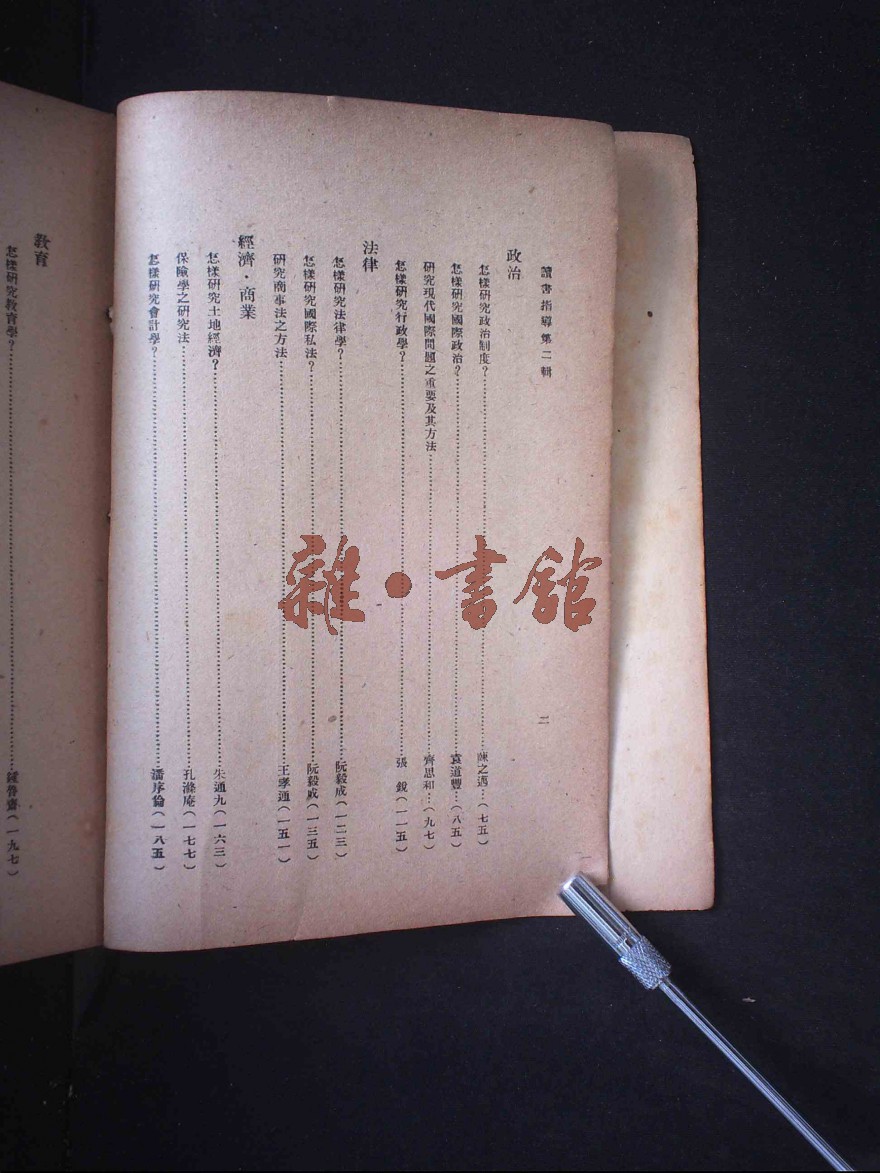 讀書指導第二輯
二
政治
怎樣研究政治制度？……陳之邁…(七五)
怎樣研究國際政治？……袁道豐…(八五)
研究現代國際問題之重要及其方法……齊思和…(九七)
怎樣研究行政學？……張　銳(一一五)
法律
怎樣研究法律學？……阮毅成(一二三)
怎樣研究國際私法？……阮毅成(一三五)
研究商事法之方法……王孝通(一五一)
經濟・商業
怎樣研究土地經濟？……朱通九(一六三)
保險學之研究法……孔滌庵(一七七)
怎樣研究會計學？……潘序倫(一八五)
教育
怎樣研究教育學？……鍾魯齋(一九七)
雜・書館